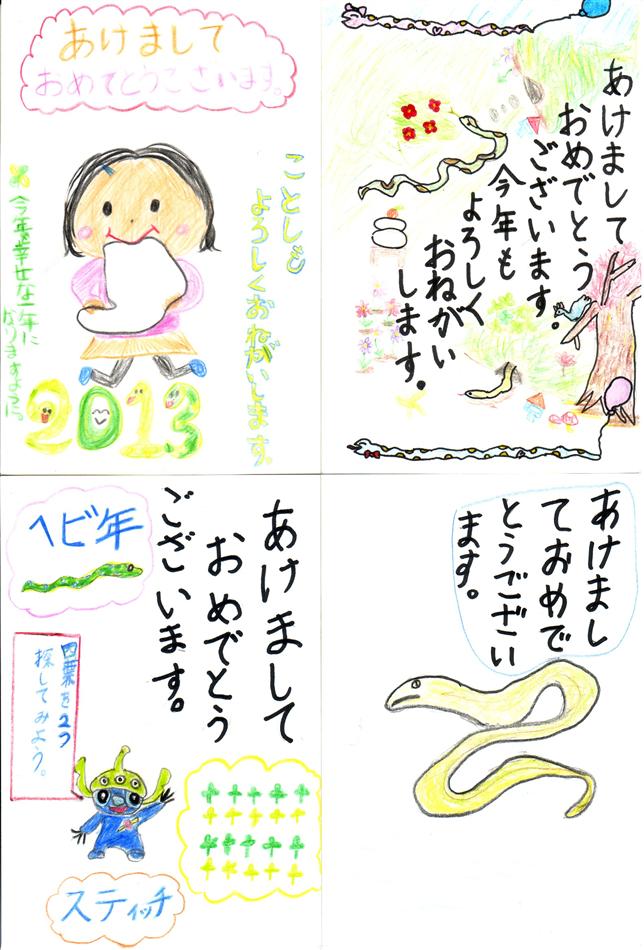 あけまして
おめでとうございます。
ことしも
よろしくおねがいします。
今年も幸せな一年に
なりますように。
2013
あけまして
おめでとう
ございます。
今年も
よろしく
おねがい
します。
ヘビ年
あけまして
おめでとう
ございます。
四葉を2つ
探してみよう。
スティッチ
あけまし
ておめで
とうござい
ます。